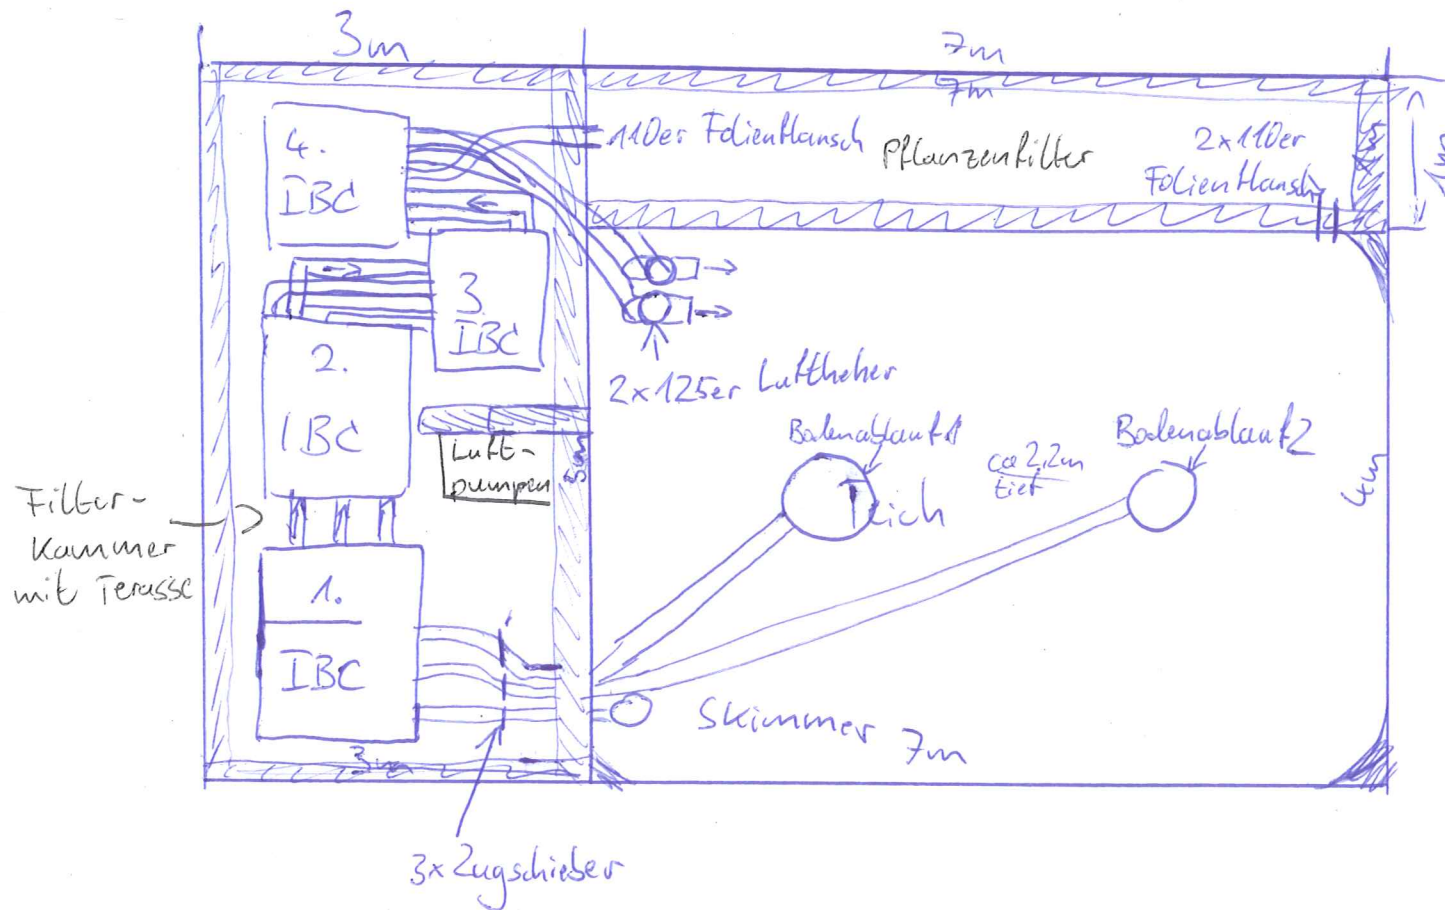 3m
7m
7m
4.
IBC
110er Folienflansch
Pflanzenfilter
2x110er
Folienflansch
1m
1m
3.
IBC
2.
IBC
2x125er Luftheber
Luft-
pumpen
5m
Bodenablauf 1
Bodenablauf 2
ca 2,2m
tief
Teich
4m
Filter-
Kammer
mit Terasse
1.
IBC
Skimmer
7m
3m
3x Zugschieber